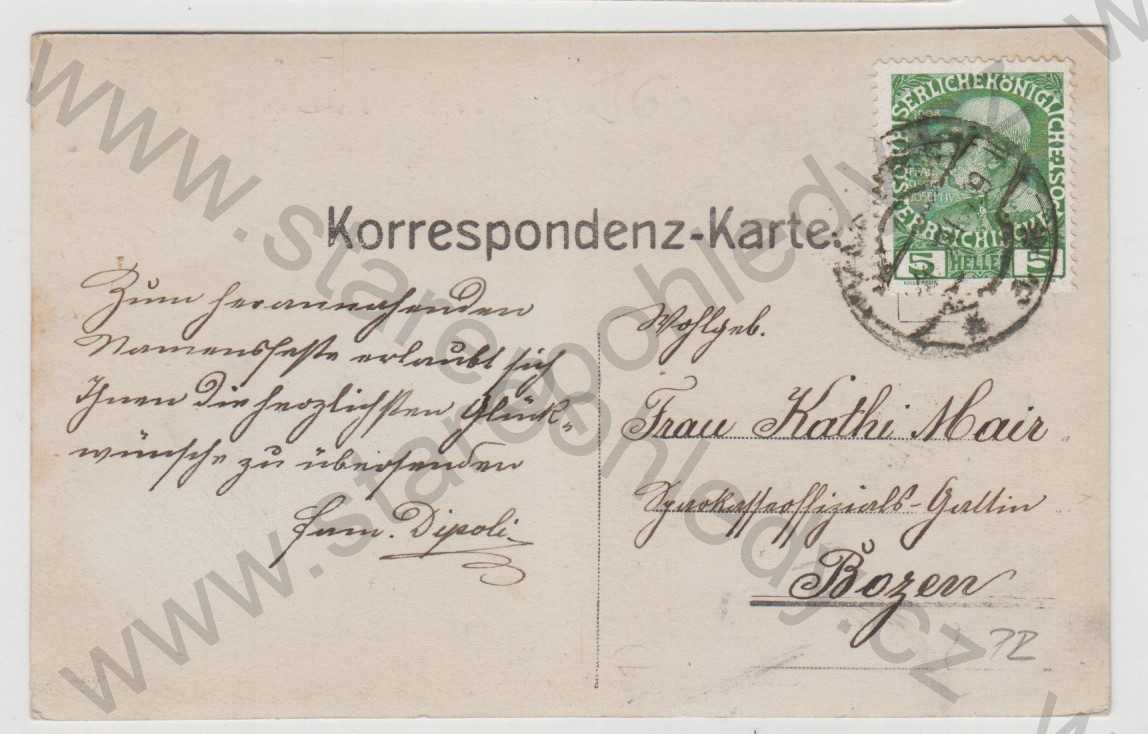 KAISERLICHE KÖNIGLICHE ÖSTERREICHISCHE
5 HELLER
Korrespondenz-Karte.
Zum herannahenden
Namensfeste erlaubt sich
Ihnen die herzlichsten Glück-
wünsche zu übersenden
Fam. Dipoli
Wohlgeb.
Frau Kathi Mair
Sparkasseoffizials-Gattin
Bozen
www.starepohledy.cz
www.starepohledy.cz